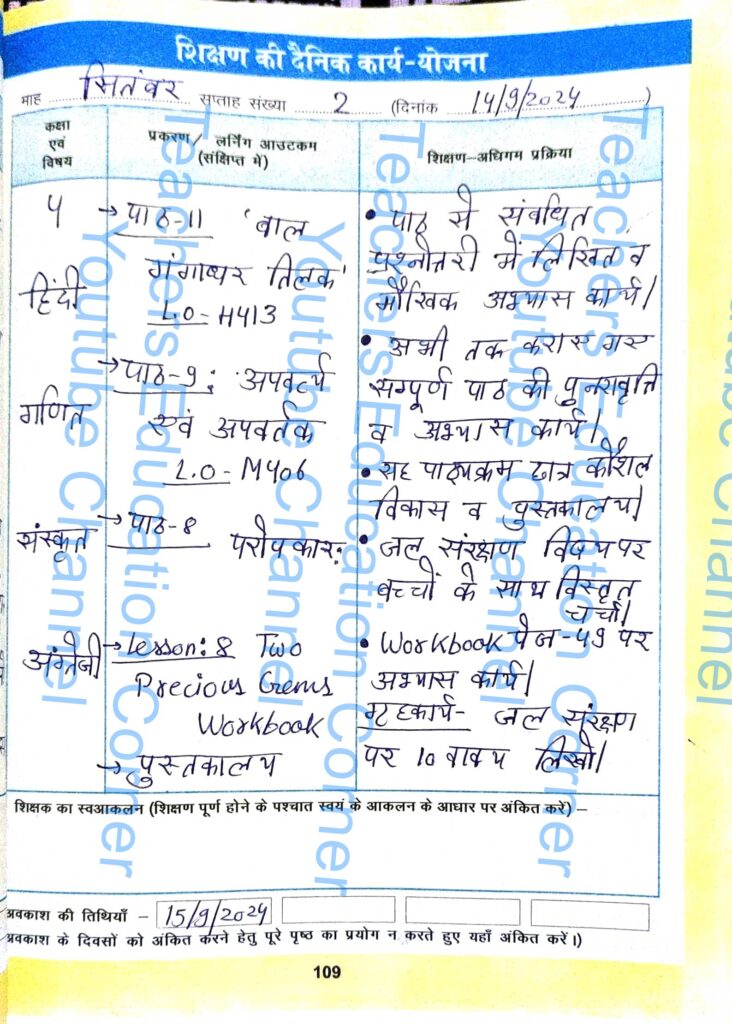 शिक्षण की दैनिक कार्य-योजना
माह सितंबर सप्ताह संख्या 2 (दिनांक 14/9/2024)
कक्षा एवं विषय
प्रकरण/ लर्निंग आउटकम (संक्षिप्त मे)
शिक्षण-अधिगम प्रक्रिया
५
→ पाठ-11 'बाल
गंगाधर तिलक'
हिंदी
L.O-H413
→ पाठ-9: अपवर्त्य
गणित
एवं अपवर्तक
L.O-M406
→ पाठ-8
संस्कृत
परोपकार:
→ Lesson: 8 Two
अंग्रेजी
Precious Gems
Workbook
→ पुस्तकालय
• पाठ से संबधित
प्रश्नोत्तरी में लिखित व
मौखिक अभ्यास कार्य।
• अभी तक कराए गए
सम्पूर्ण पाठ की पुनरावृति
व अभ्यास कार्य।
• सह पाठ्यक्रम छात्र कौशल
विकास व पुस्तकालय।
• जल संरक्षण विषय पर
बच्चों के साथ विस्तृत
चर्चा।
• Workbook पेज-49 पर
अभ्यास कार्य।
गृहकार्य- जल संरक्षण
पर 10 वाक्य लिखो।
शिक्षक का स्वआकलन (शिक्षण पूर्ण होने के पश्चात स्वयं के आकलन के आधार पर अंकित करें) –
अवकाश की तिथियाँ – 15/9/2024
अवकाश के दिवसों को अंकित करने हेतु पूरे पृष्ठ का प्रयोग न करते हुए यहाँ अंकित करें।)
109
Teachers Education Corner
Youtube Channel
Teachers Education Corner
Youtube Channel
Teachers Education Corner
Youtube Channel